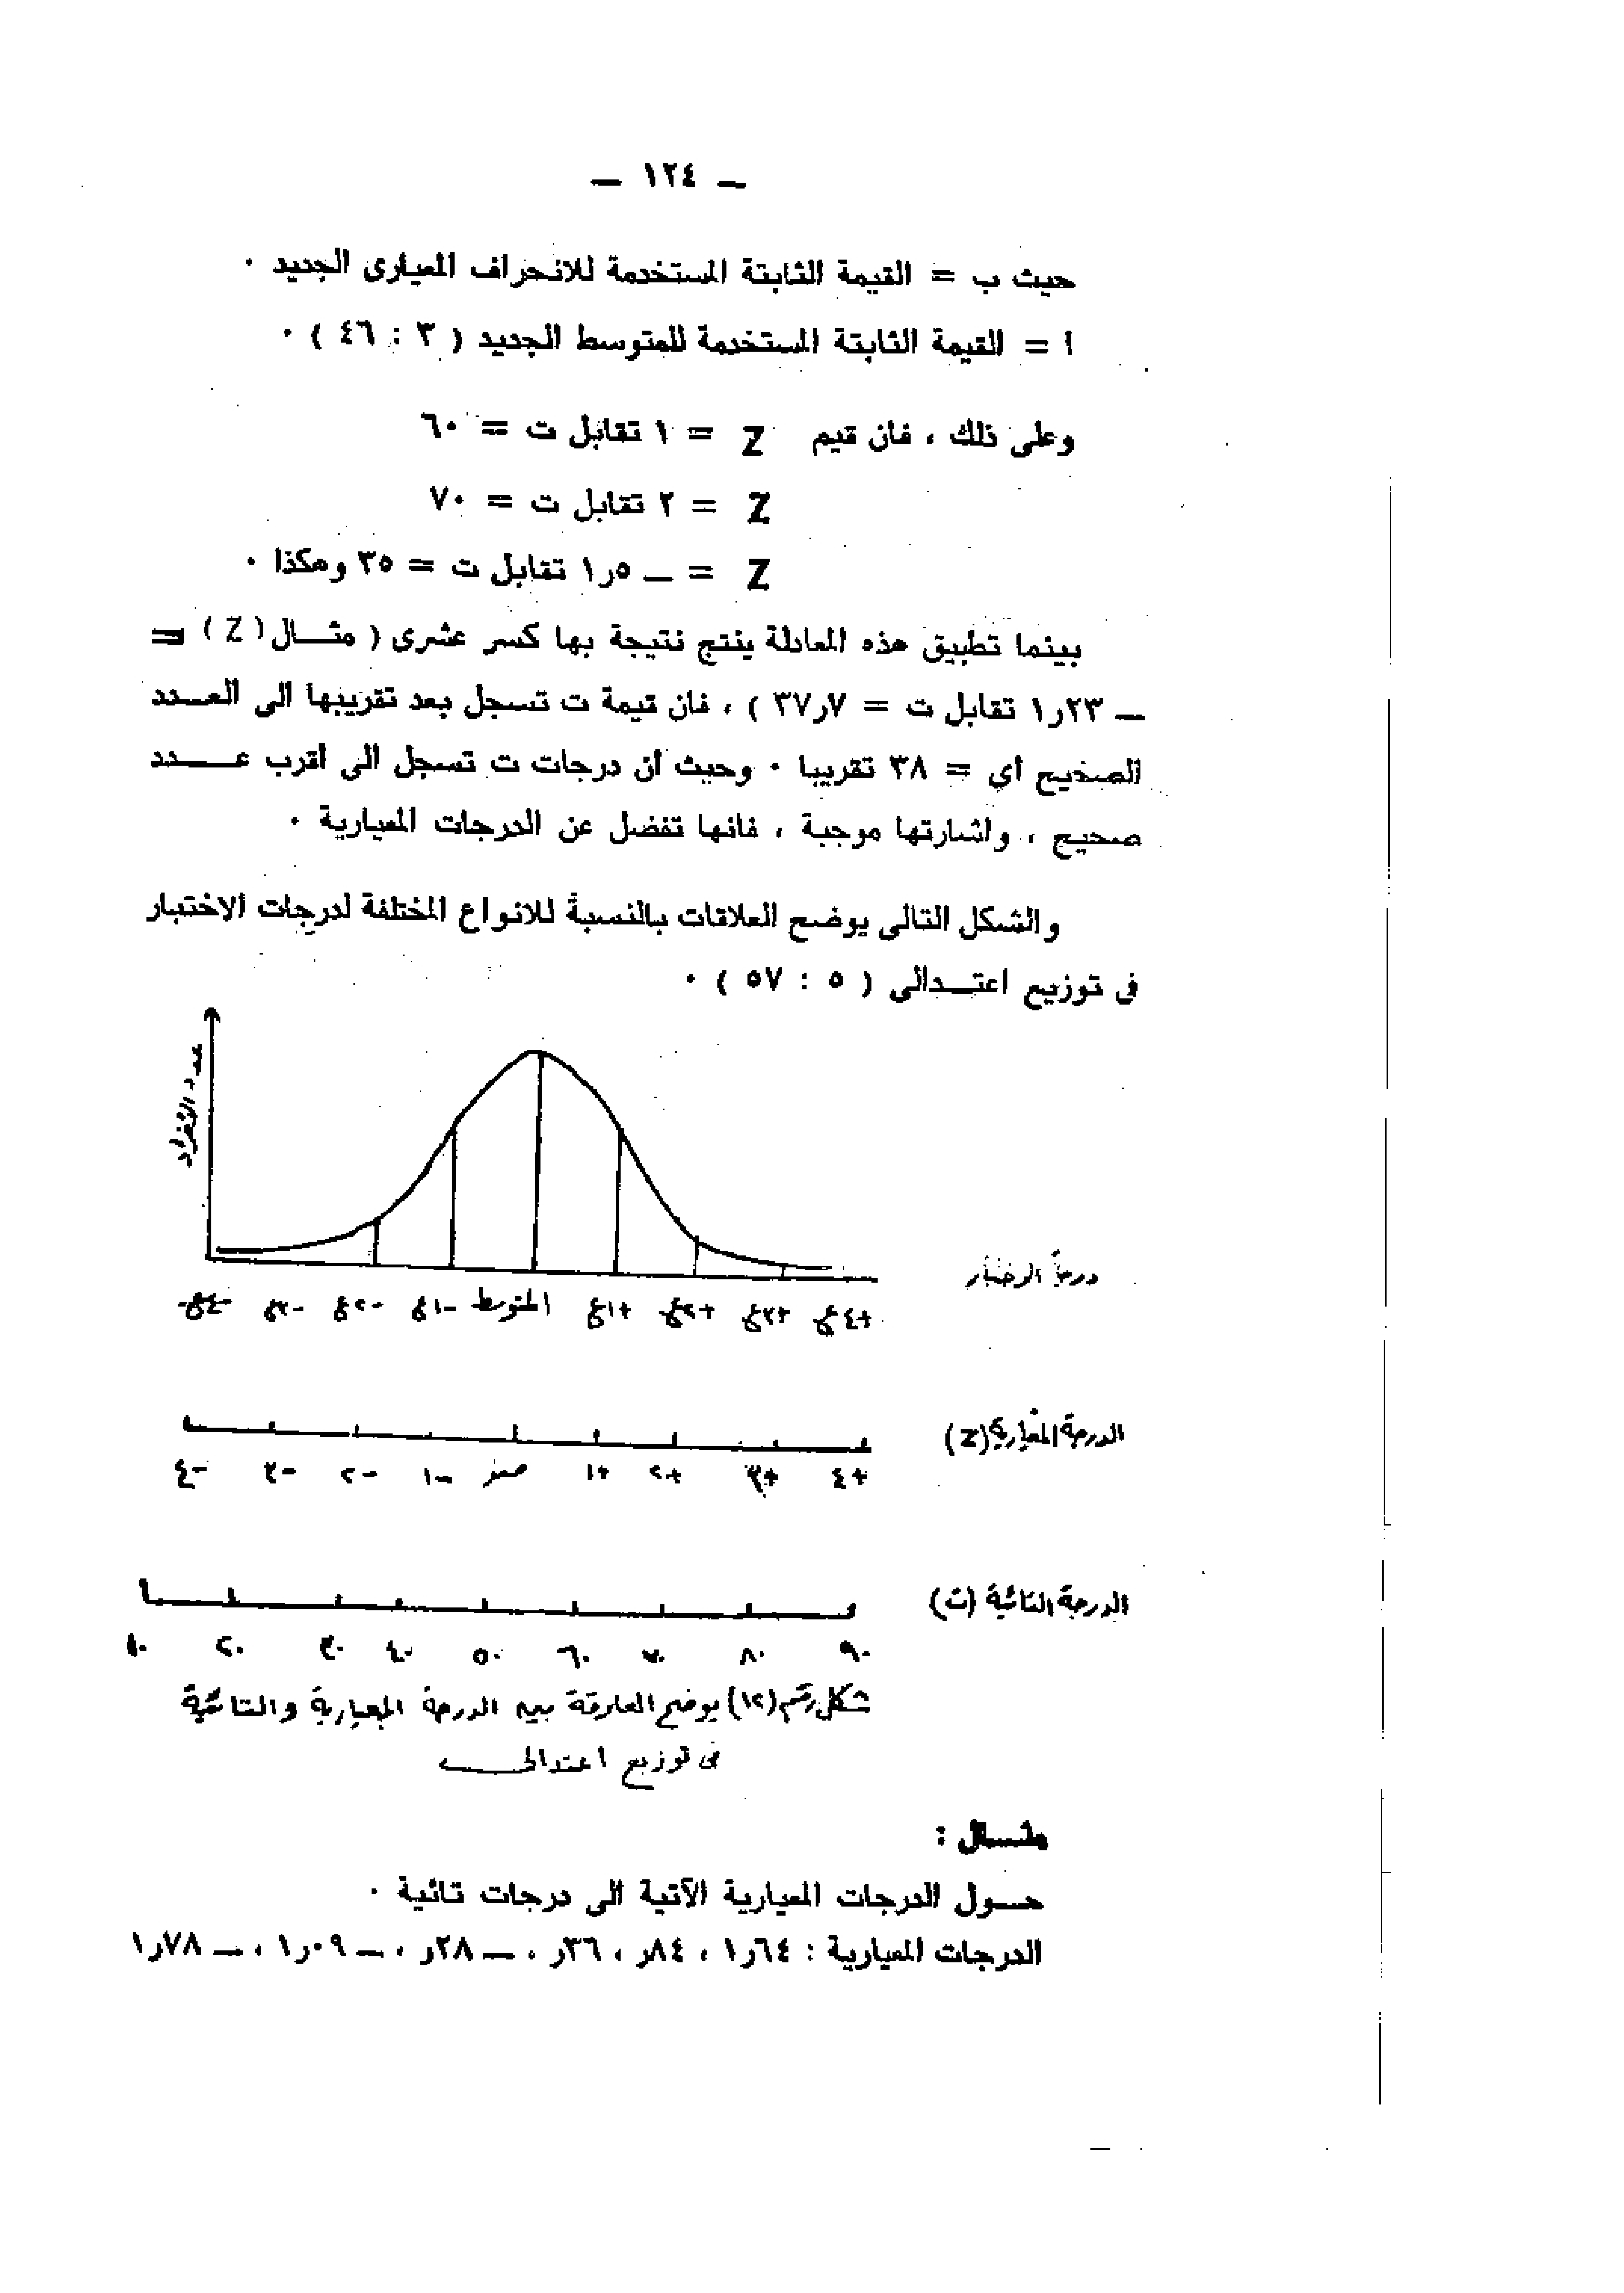 — ١٢٤ —
حيث ب = القيمة الثابتة المستخدمة للانحراف المعيارى الجديد ٠
أ = القيمة الثابتة المستخدمة للمتوسط الجديد ( ٣ : ٤٦ ) ٠
وعلى ذلك ، فان قيم Z = ١ تقابل ت = ٦٠
Z = ٢ تقابل ت = ٧٠
Z = — ٥ر١ تقابل ت = ٣٥ وهكذا ٠
بينما تطبيق هذه المعادلة ينتج نتيجة بها كسر عشرى ( مثـــال ( Z ) =
— ٢٣ر١ تقابل ت = ٧ر٣٧ ) ، فان قيمة ت تسجل بعد تقريبها الى العـــدد
الصحيح أي = ٣٨ تقريبا ٠ وحيث أن درجات ت تسجل الى أقرب عــــدد
صحيح ، واشارتها موجبة ، فانها تفضل عن الدرجات المعيارية ٠
والشكل التالى يوضح العلاقات بالنسبة للانواع المختلفة لدرجات الاختبار
فى توزيع اعتـــدالى ( ٥ : ٥٧ ) ٠
عدد الأفراد
درجات الاختبار
-٤ع -٣ع -٢ع -١ع المتوسط +١ع +٢ع +٣ع +٤ع
الدرجة المعيارية (Z)
-٤ -٣ -٢ -١ صفر +١ +٢ +٣ +٤
الدرجة التائية (ت)
١٠ ٢٠ ٣٠ ٤٠ ٥٠ ٦٠ ٧٠ ٨٠ ٩٠
شكل رقم (١٢) يوضح العلاقة بين الدرجة المعيارية والتائية
فى توزيع اعتدالى
مثـــال :
حـــول الدرجات المعيارية الآتية الى درجات تائية ٠
الدرجات المعيارية : ٦٤ر١ ، ٨٤ر ، ٣٦ر ، — ٢٨ر ، — ٠٩ر١ ، — ٧٨ر١